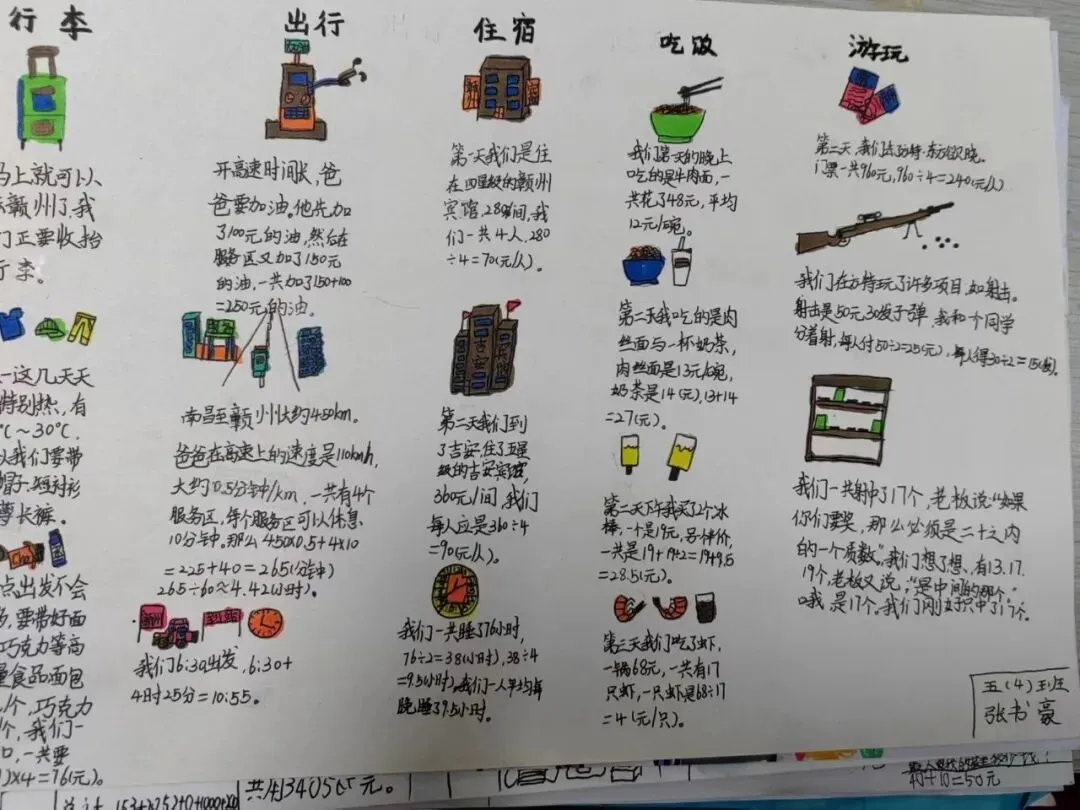 行李
马上就可以
赣州了,我
们正要收拾
行李。
一这几天天
特别热,有
℃~30℃.
以我们要带
帽子.短衬衫
长裤。
点出发不会
,要带好面
巧克力等高
食品面包
个,巧克力
个,我们一
口,一共要
)×4=76(元)。
出行
开高速时间长,爸
爸要加油。他先加
了100元的油,然后在
服务区又加了150元
的油,一共加了150+100
=250元的油。
南昌至赣州大约450km.
爸爸在高速上的速度是110km/h,
大约0.5分钟/km,一共有4个
服务区,每个服务区可以休息
10分钟。那么450×0.5+4×10
=225+40=265(分钟)
265÷60≈4.42(小时)。
到站
我们6:30出发,6:30+
4时25分=10:55。
住宿
第一天我们是住
在四星级的赣州
宾馆,280/间,我
们一共4人,280
÷4=70(元/人)。
吉安
第二天我们到
了吉安,住了五星
级的吉安宾馆,
360元/间,我们
每人应是360÷4
=90(元/人)。
我们一共睡了76小时,
76÷2=38(小时),38÷4
=9.5(小时),我们一人平均每
晚睡了9.5小时。
吃饭
我们第一天的晚上
吃的是牛肉面,一
共花了48元,平均
12元/碗。
第二天我吃的是肉
丝面与一杯奶茶,
肉丝面是13元/碗,
奶茶是14(元),13+14
=27(元)。
第二天下午我买了2个冰
棒,一个是19元,另一半价,
一共是19+19÷2=19+9.5
=28.5(元)。
第三天我们吃了虾,
一锅68元,一共有17
只虾,一只虾是68÷17
=4(元/只)。
游玩
第二天,我们去方特·东方欲晓。
门票一共960元,960÷4=240(元/人)
我们在方特玩了许多项目,如射击。
射击是50元30发子弹,我和一个同学
分着射,每人付50÷2=25(元),每人得30÷2=15(发)。
我们一共射中了17个,老板说:“如果
你们要奖,那么必须是二十之内
的一个质数。”我们想了想,有13.17.
19个,老板又说,“是中间的那个。”
哦是17个。我们刚好射中了17个。
五(4)班
张书豪
共用3405.65元。
40+10=50元